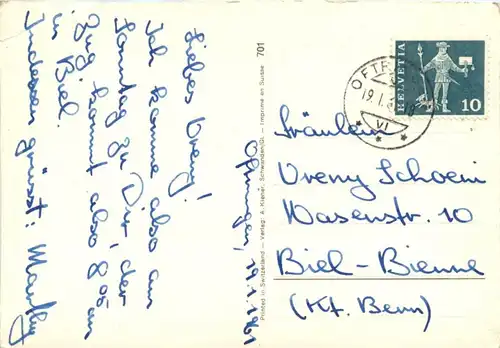 Oftringen, 19.1.1961
Liebes Vreny!
Ich komme also am
Sonntag zu Dir, der
Zug kommt also 8⁰⁵ an
in Biel.
Indessen grüsst: Marthy
701
Printed in Switzerland — Verlag: A. Kiener, Schwanden/Gl. — Imprimé en Suisse
OFTR
19.1.
VI
HELVETIA
10
Fräulein
Vreny Schoeni
Wasenstr. 10
Biel-Bienne
(Kt. Bern)